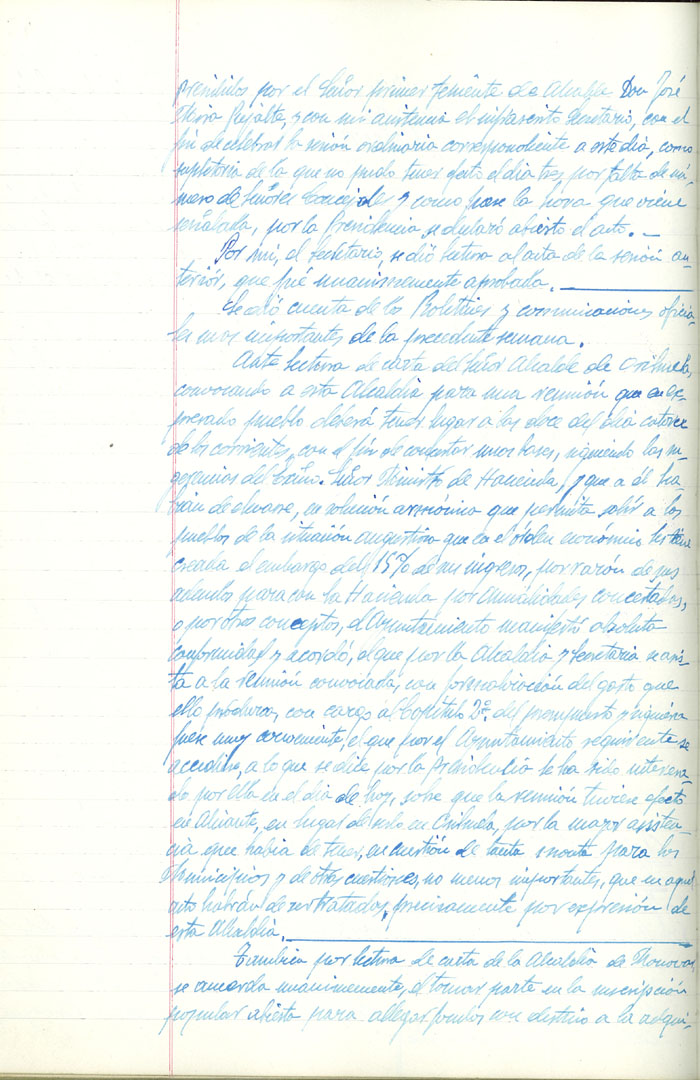 presididos por el Señor primer Teniente de Alcalde Don José
Mira Peralta, y con mi asistencia el infrascrito Secretario, con el
fin de celebrar la sesión ordinaria correspondiente a este día, como
supletoria de la que no pudo tener efecto el día tres, por falta de nú-
mero de Señores Concejales y como fuese la hora que viene
señalada, por la Presidencia se declaró abierto el acto. —
Por mí, el Secretario, se dió lectura al acta de la sesión an-
terior, que fué unanimemente aprobada.
Se dió cuenta de los Boletines y comunicaciones oficia-
les mas importantes de la precedente semana.
Ante lectura de carta del Señor Alcalde de Orihuela,
convocando a esta Alcaldía para una reunión que en ex-
presado pueblo deberá tener lugar a las doce del día catorce
de los corrientes, con el fin de concertar unas bases, siguiendo las su-
gerencias del Exmo. Señor Ministro de Hacienda, y que a él ha-
brán de elevarse, en solución armónica que permita salir a los
pueblos de la situación angustiosa que en el órden económico les tiene
creada el embargo del 15% de sus ingresos, por razón de sus
adeudos para con la Hacienda por anualidades concertadas,
o por otros conceptos, el Ayuntamiento manifestó absoluta
conformidad y acordó, el que por la Alcaldía y Secretaría se asis-
ta a la reunión convocada, con formalización del gasto que
ello produzca, con cargo al Capítulo 2º. del presupuesto y siquiera
fuese muy conveniente, el que por el Ayuntamiento requirente se
accediese, a lo que se dice por la Presidencia le ha sido interesa-
do por ella en el día de hoy, sobre que la reunión tuviese efecto
en Alicante, en lugar de serlo en Orihuela, por la mayor asisten-
cia que había de tener, en cuestión de tanta monta para los
Municipios y de otras cuestiones, no menos importantes, que en aquel
acto habrán de ser tratadas, precisamente por expresión de
esta Alcaldía.
Tambien por lectura de carta de la Alcaldía de Monovar
se acuerda unanimemente, el tomar parte en la suscripción
popular abierta para allegar fondos con destino a la adqui-